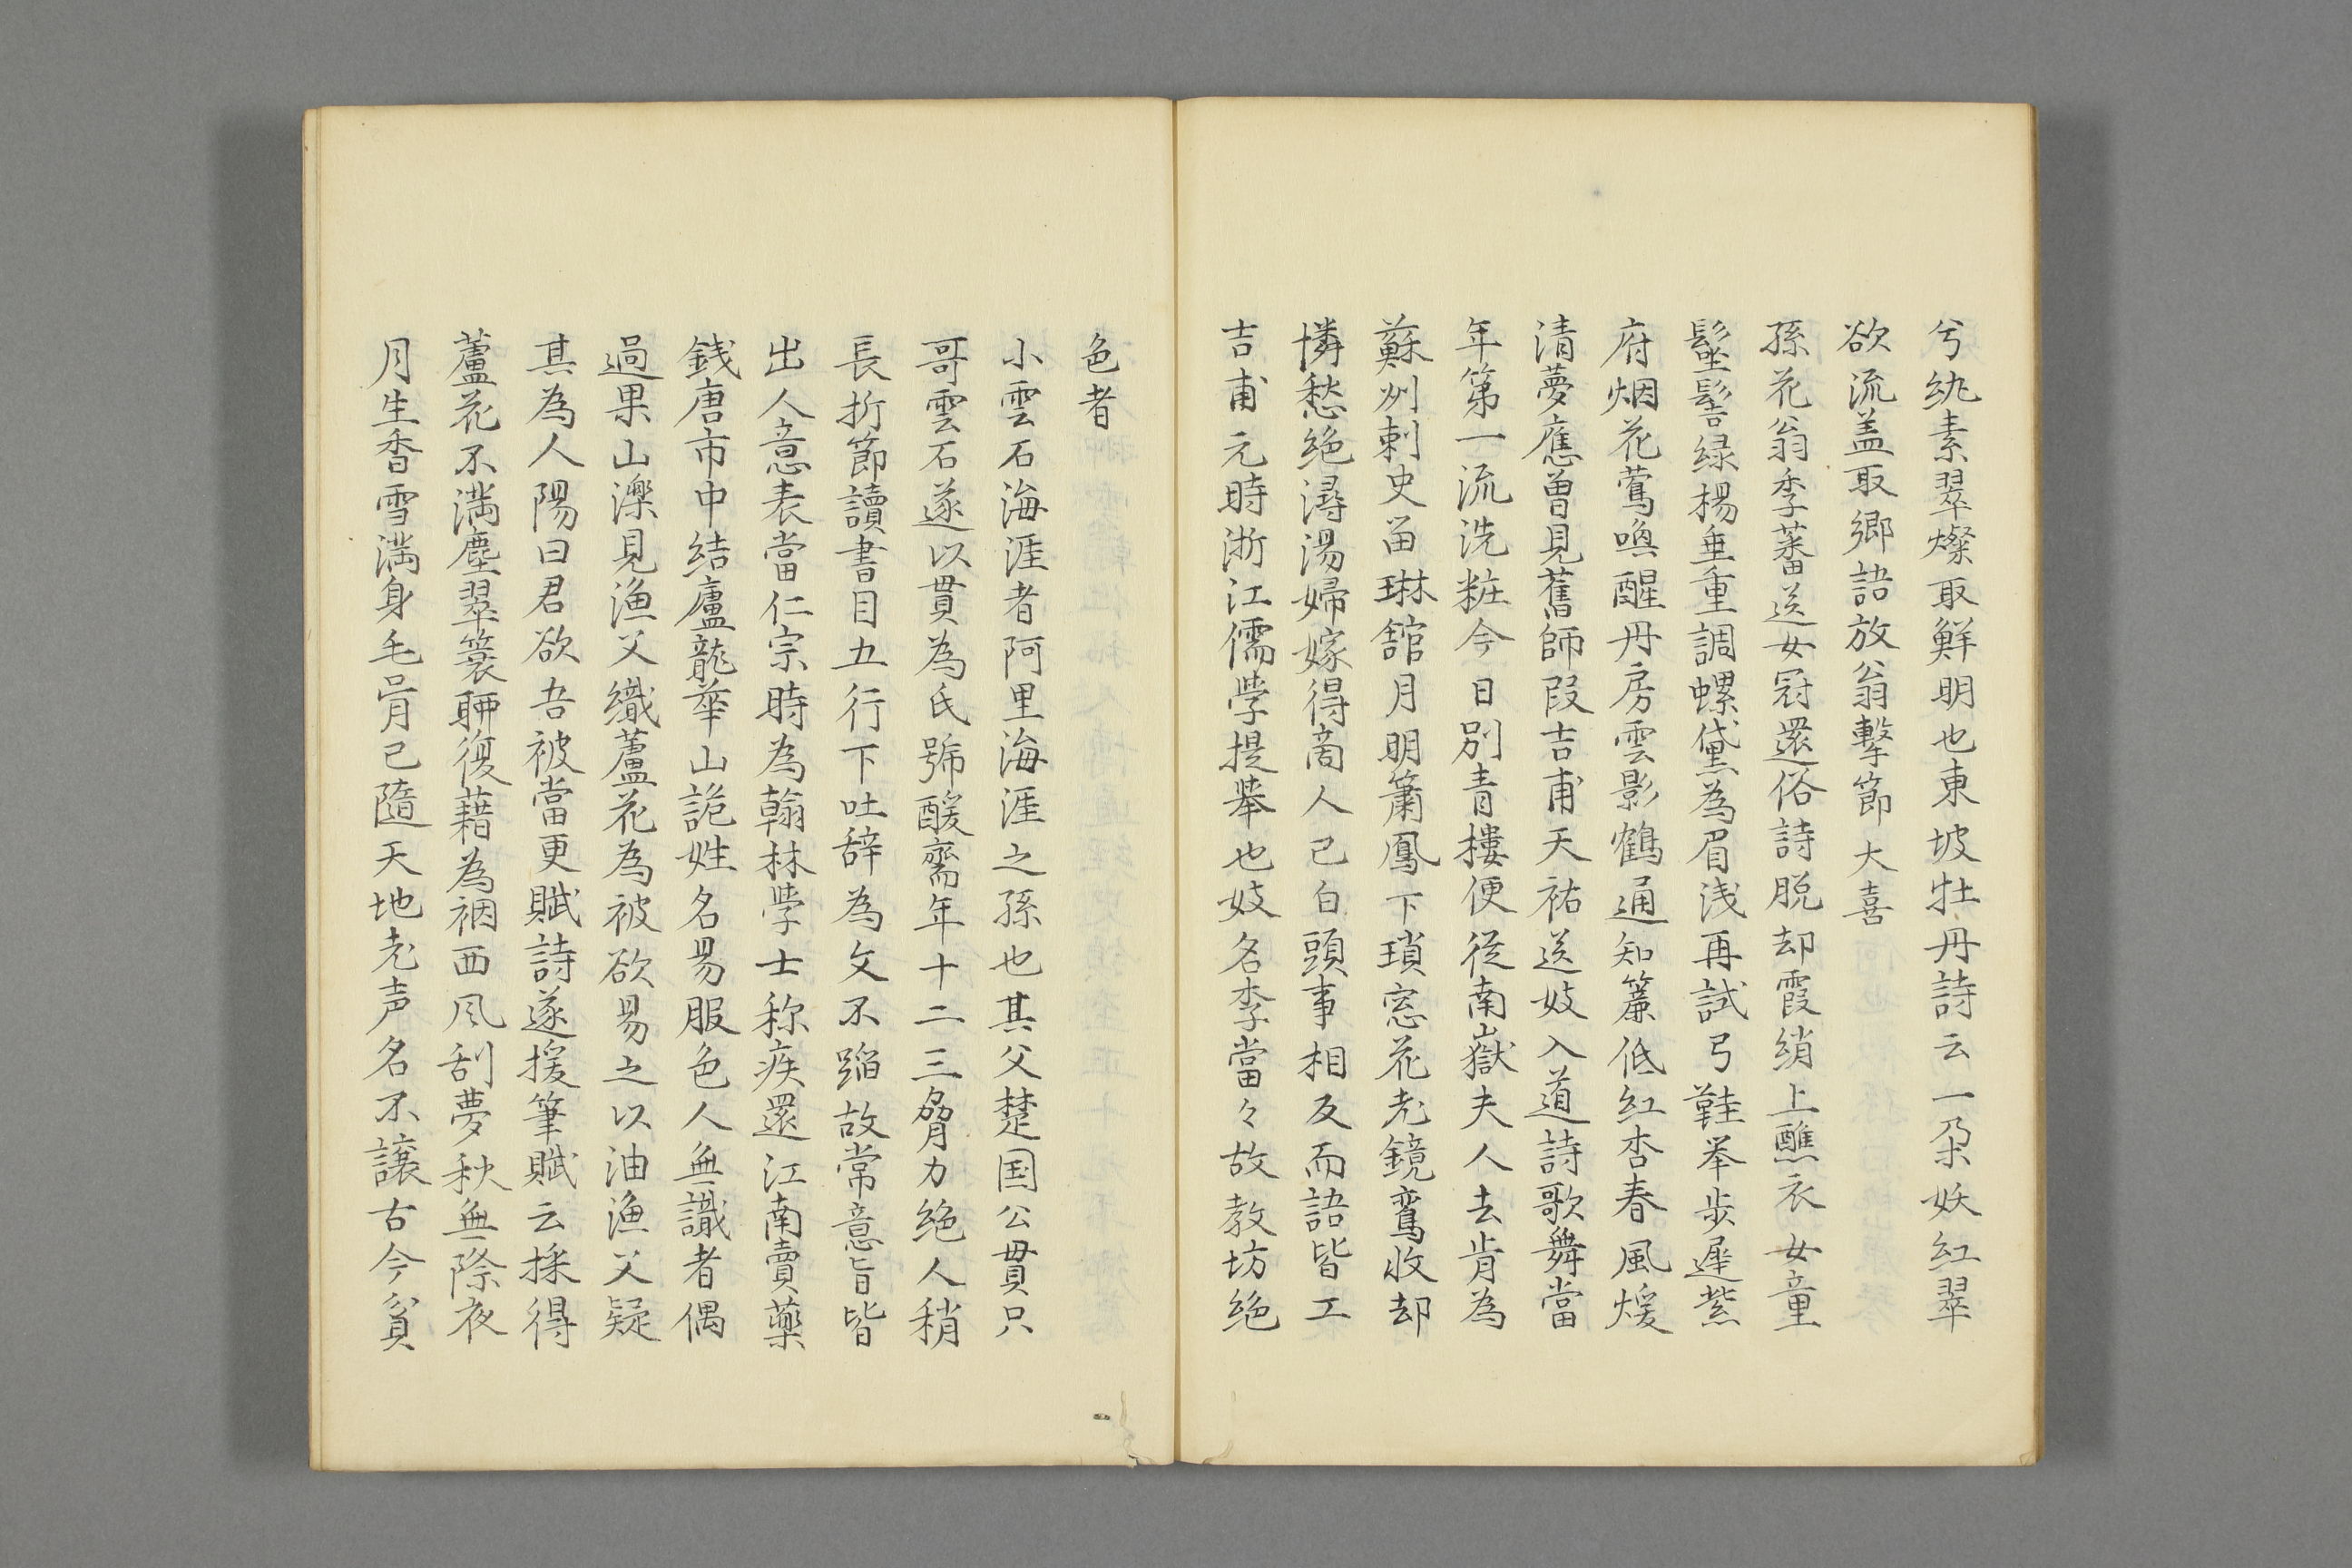 兮紈素翠燦取鮮明也東坡牡丹詩云一朶妖紅翠
欲流盖取鄉語放翁擊節大喜
孫花翁季蕃送女冠還俗詩脱却霞綃上醮衣女童
鬟髻緑楊垂重調螺黛為眉浅再試弓鞋举步遲紫
府烟花鶯喚醒丹房雲影鶴通知簾低紅杏春風煖
清夢應曽見舊師叚吉甫天祐送妓入道詩歌舞當
年第一流洗粧今日别青樓便從南嶽夫人去肯為
蘇州刺史畄琳館月明簫鳳下瑣窓花老鏡鸞收却
憐愁絶潯湯婦嫁得商人已白頭事相反而語皆工
吉甫元時浙江儒学提舉也妓名李當々故教坊絶
色者
小雲石海涯者阿里海涯之孫也其父楚国公貫只
哥雲石遂以貫為氏號酸齋年十二三膂力绝人稍
長折節讀書目五行下吐辞為文不蹈故常意旨皆
出人意表當仁宗時為翰林学士称疾還江南賣藥
銭唐市中結廬龍華山詭姓名易服色人無識者偶
過果山濼見漁父織蘆花為被欲易之以油漁父疑
其為人陽曰君欲吾被當更賦詩遂援筆賦云採得
蘆花不满塵翠簑聊復藉為裀西风刮夢秋無際夜
月生香雪满身毛骨已隨天地老声名不讓古今貧